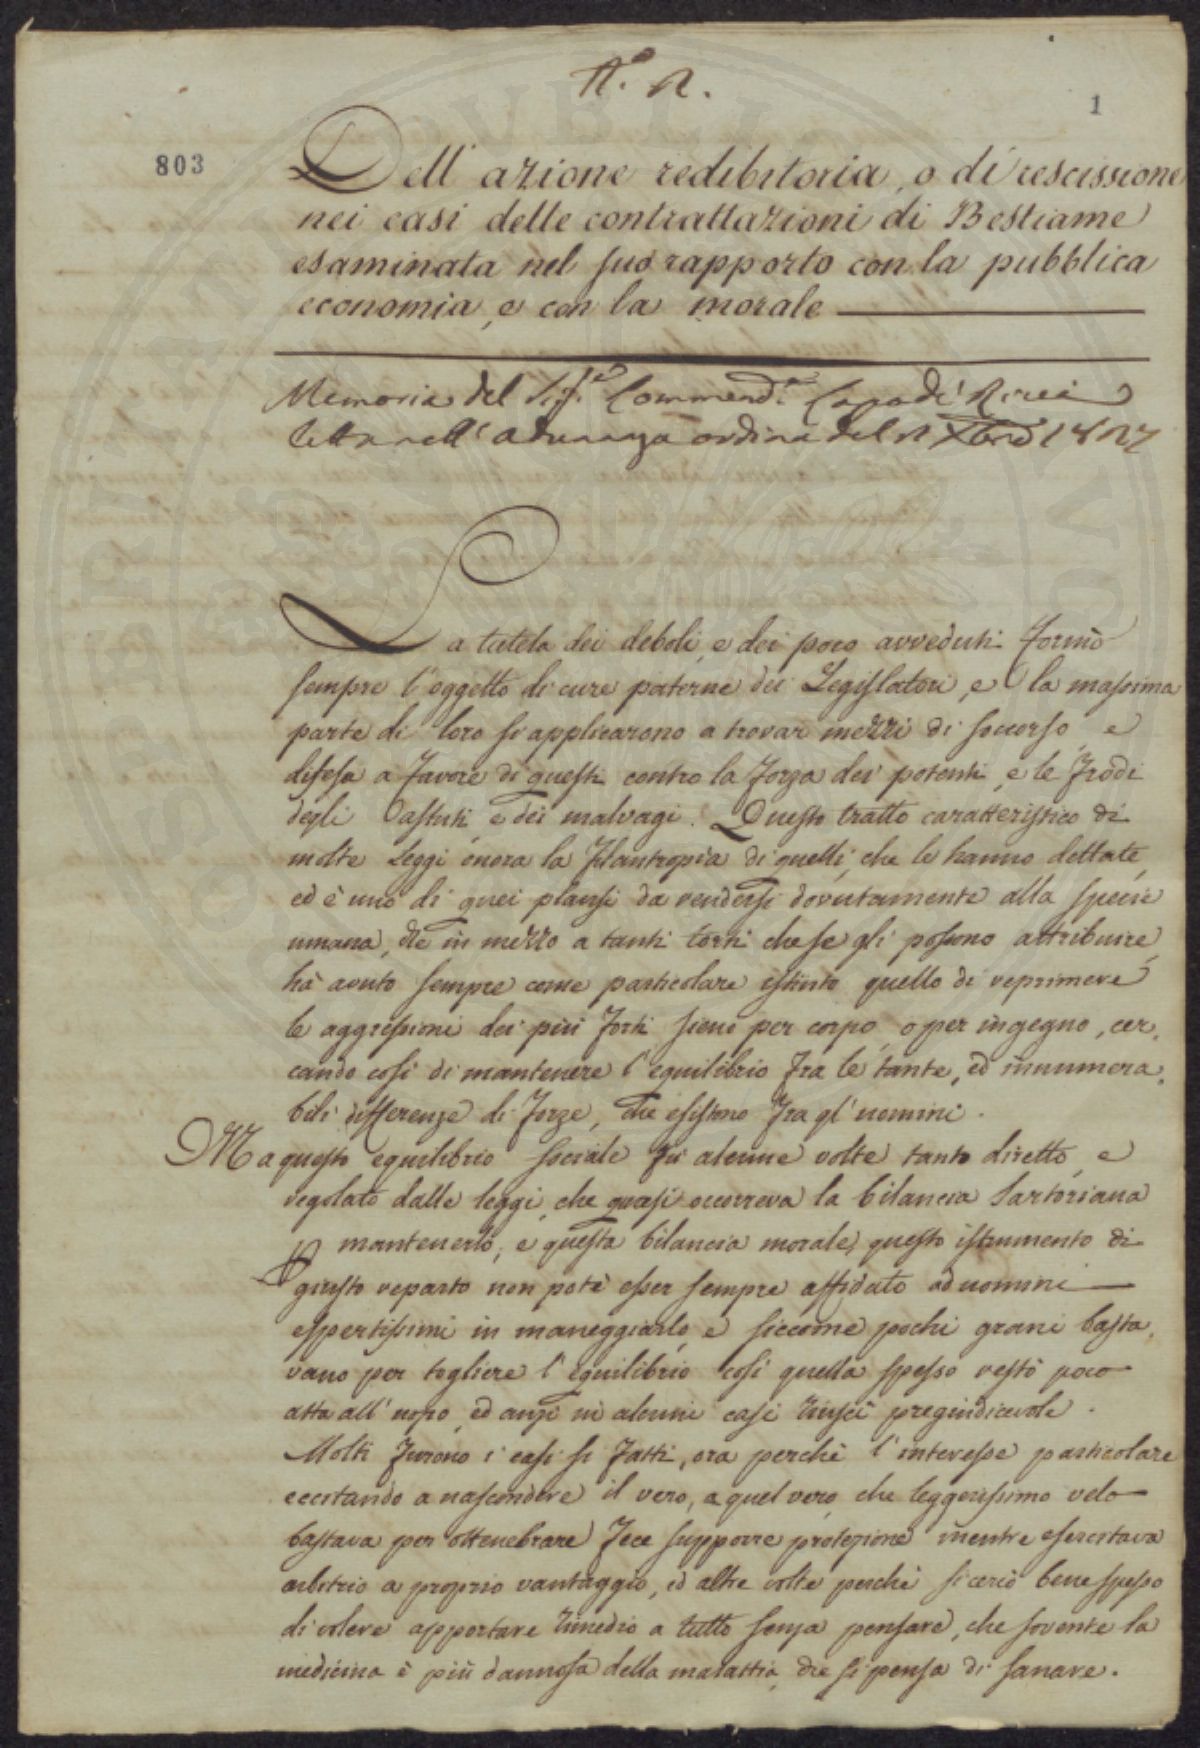 N.° 2.
1
803
Dell'azione redibitoria, o di rescissione
nei casi delle contrattazioni di Bestiame
esaminata nel suo rapporto con la pubblica
economia, e con la morale
Memoria del Sig.re Commend.re Capodi
letta nell'adunanza ordina del 2 Xbre 1827
La tutela dei deboli, e dei poco avveduti formò
sempre l'oggetto di cure paterne dei Legislatori, e la massima
parte di loro si applicarono a trovar mezzi di soccorso, e
difesa a favore di questi contro la forza dei potenti, e le frodi
degli astuti, e dei malvagi. Questo tratto caratteristico di
molte Leggi onora la filantropia di quelli, che le hanno dettate,
ed è uno di quei plausi da rendersi dovutamente alla specie
umana, che in mezzo a tanti torti che se gli possono attribuire,
hà avuto sempre come particolare istinto quello di reprimere
le aggressioni dei più forti sieno per corpo, o per ingegno, cer-
cando così di mantenere l'equilibrio fra le tante, ed innumera-
bili differenze di forze, che esistono fra gl'uomini.
Ma questo equilibrio sociale fù alcune volte tanto diretto, e
regolato dalle leggi, che quasi occorreva la bilancia Sartoriana
p mantenerlo, e questa bilancia morale, questo istrumento di
giusto reparto non potè esser sempre affidato ad uomini
espertissimi in maneggiarlo, e siccome pochi grani basta-
vano per togliere l'equilibrio così quella spesso restò poco
atta all'uopo, ed anzi in alcuni casi riuscì pregiudicevole.
Molti furono i casi si fatti, ora perchè l'interesse particolare
eccitando a nascondere il vero, a quel vero, che leggerissimo velo
bastava per ottenebrare fece supporre protezione mentre esercitava
arbitrio a proprio vantaggio, ed altre volte perchè si cercò bene spesso
di volere apportare rimedio a tutto senza pensare, che sovente la
medicina è più dannosa della malattia, che si pensa di sanare.